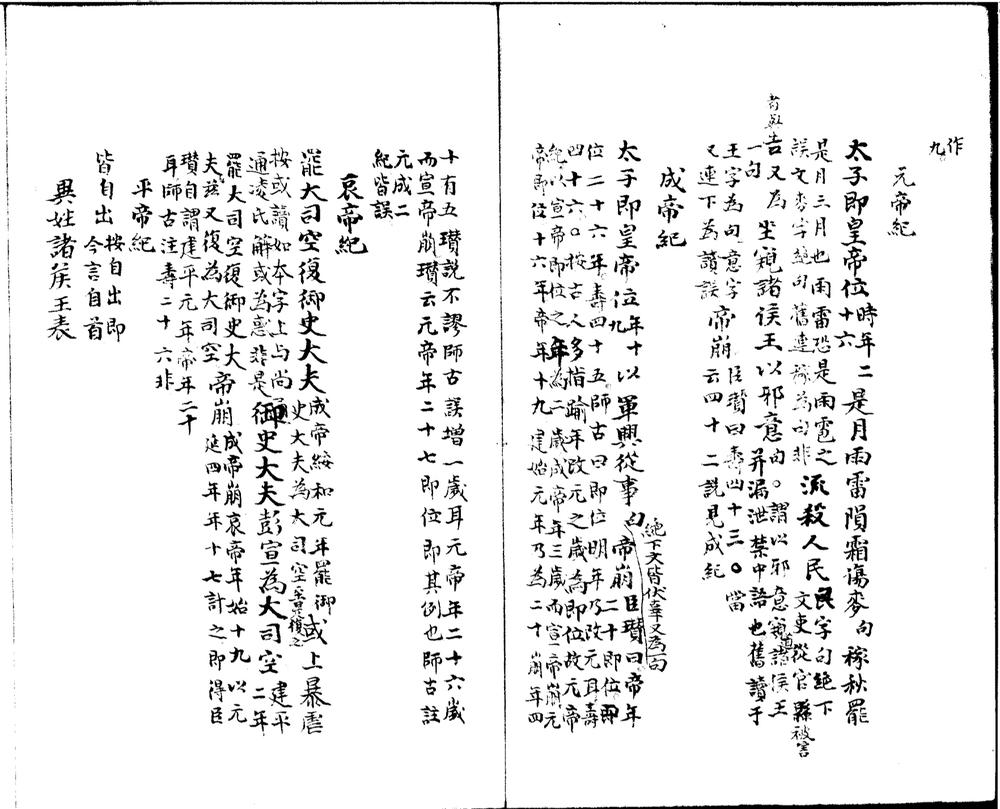 作
九
元帝紀
太子即皇帝位時年十六 二是月雨雷隕霜傷麥句稼秋罷
是月三月也雨雷恐是雨雹之流殺人民民字句絶下
誤文麥字絶句舊連稼為句非 文吏從官縣被害
者與告又為一句 坐窺諸侯王以邪意句。謂以邪意窺諸侯王 并漏泄禁中語也舊讀于
王字為句意字又連下為讀誤 帝崩臣瓚曰壽四十三。當云四十二説見成紀
成帝紀
太子即皇帝位年十九 以軍興從事句 絶下文皆伏辜又為一句 帝崩臣瓚曰帝年二十即位即
位二十六年壽四十五師古曰即位明年乃改元耳壽
四十六。按古人多指踰年改元之歲為即位故元帝
紀以宣帝即位之年為二歲成帝年三歲而宣帝崩元
帝即位十六年帝年十九建始元年乃為二十崩年四
十有五瓚説不謬師古誤增一歲耳元帝年二十六歲
而宣帝崩瓚云元帝年二十七即位即其例也師古註
元成二
紀皆誤
哀帝紀
罷大司空復御史大夫成帝綏和元年罷御史大夫為大司空至是復之 或上暴虐
按或讀如本字上与尚通凌氏解或為惑非是 御史大夫彭宣為大司空建平二年
罷大司空復御史大夫茲又復為大司空 帝崩成帝崩哀帝年始十九以元延四年年十七計之即得臣
瓚自謂建平元年帝年二十
耳師古注壽二十六非
平帝紀
皆自出按自出即今言自首
異姓諸矦王表